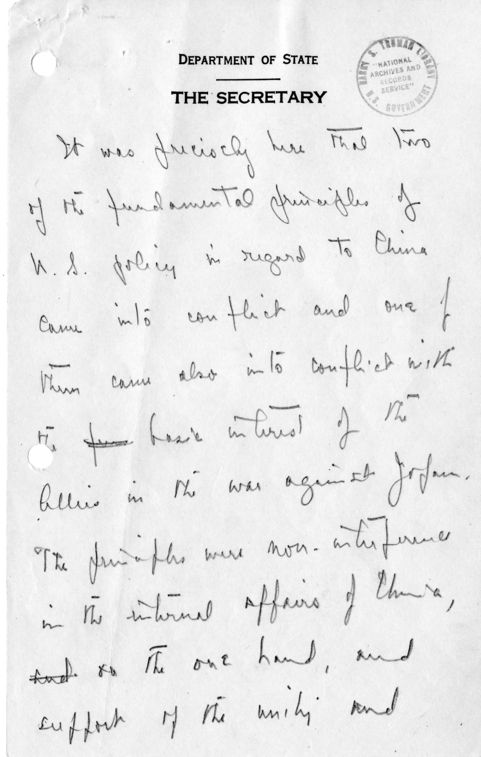 DEPARTMENT OF STATE
THE SECRETARY
HARRY S. TRUMAN LIBRARY
"NATIONAL
ARCHIVES AND
RECORDS
SERVICE"
U.S. GOVERNMENT
It was precisely here that two
of the fundamental principles of
U. S. policy in regard to China
came into conflict and one of
them came also into conflict with
the basic interest of the
Allies in the war against Japan.
The principles were non-interference
in the internal affairs of China,
and on the one hand, and
support of the unity and